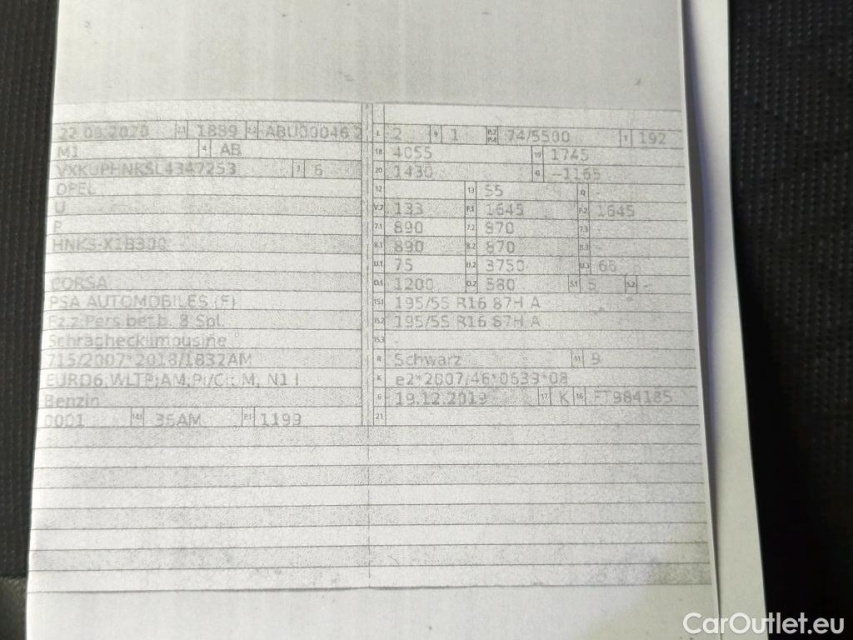 22.09.2020 1899 ABU00046 2
M1 4 AB
VXKUPHNKSL4347253 3 6
OPEL
U
P
HNKS-X1B300
CORSA
PSA AUTOMOBILES (F)
Fz.z.Pers.bef.b. 8 Spl.
Schräghecklimousine
715/2007*2018/1832AM
EURO6;WLTP;AM;PI/CI; M, N1 I
Benzin
0001 35AM 1199
2 9 1 P.2 P.4 74/5500 T 192
4055 1745
1430 -1165
12 13 55 Q -
133 1645 1645
890 970
890 870
75 3750 66
1200 580 5 -
195/55 R16 87H A
195/55 R16 87H A
R Schwarz 11 9
K e2*2007/46*0639*08
6 19.12.2019 17 K 16 FT984185
21
CarOutlet.eu